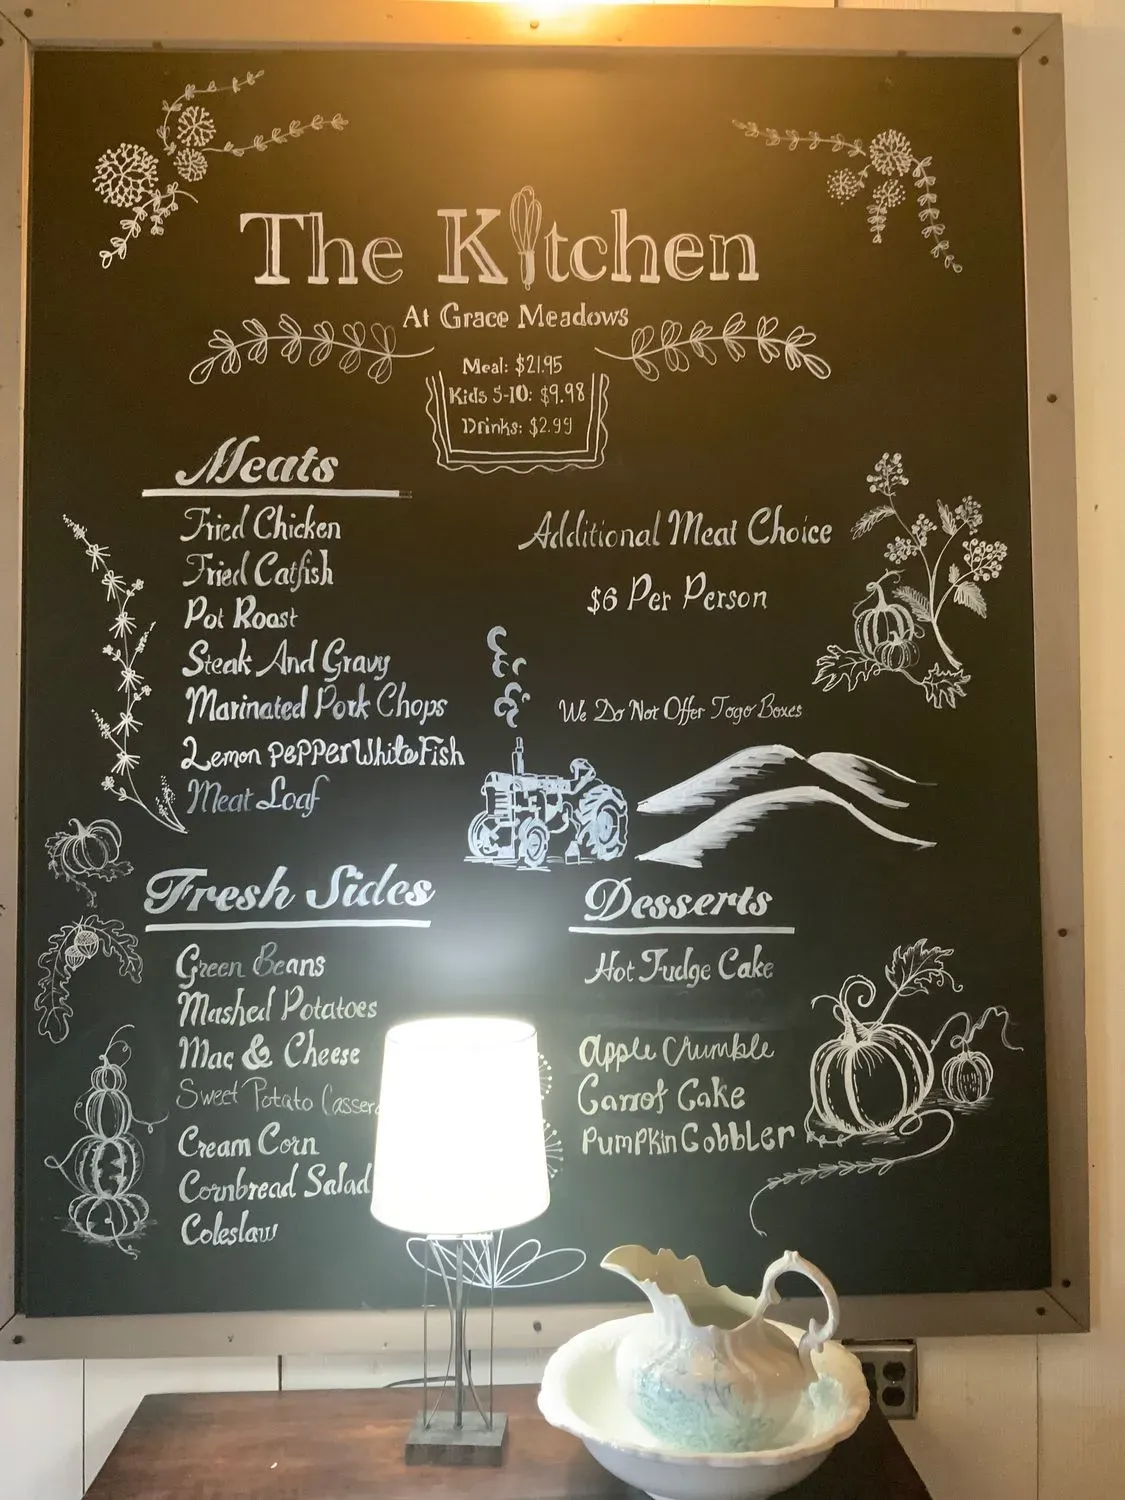 The Kitchen
At Grace Meadows
Meal: $21.95
Kids 5-10: $9.98
Drinks: $2.99
Meats
Fried Chicken
Fried Catfish
Pot Roast
Steak And Gravy
Marinated Pork Chops
Lemon PePPer White Fish
Meat Loaf
Additional Meat Choice
$6 Per Person
We Do Not Offer Togo Boxes
Fresh Sides
Green Beans
Mashed Potatoes
Mac & Cheese
Sweet Potato
Cream Corn
Cornbread Salad
Coleslaw
Desserts
Hot Fudge Cake
Apple Crumble
Carrot Cake
PumPkin Cobbler